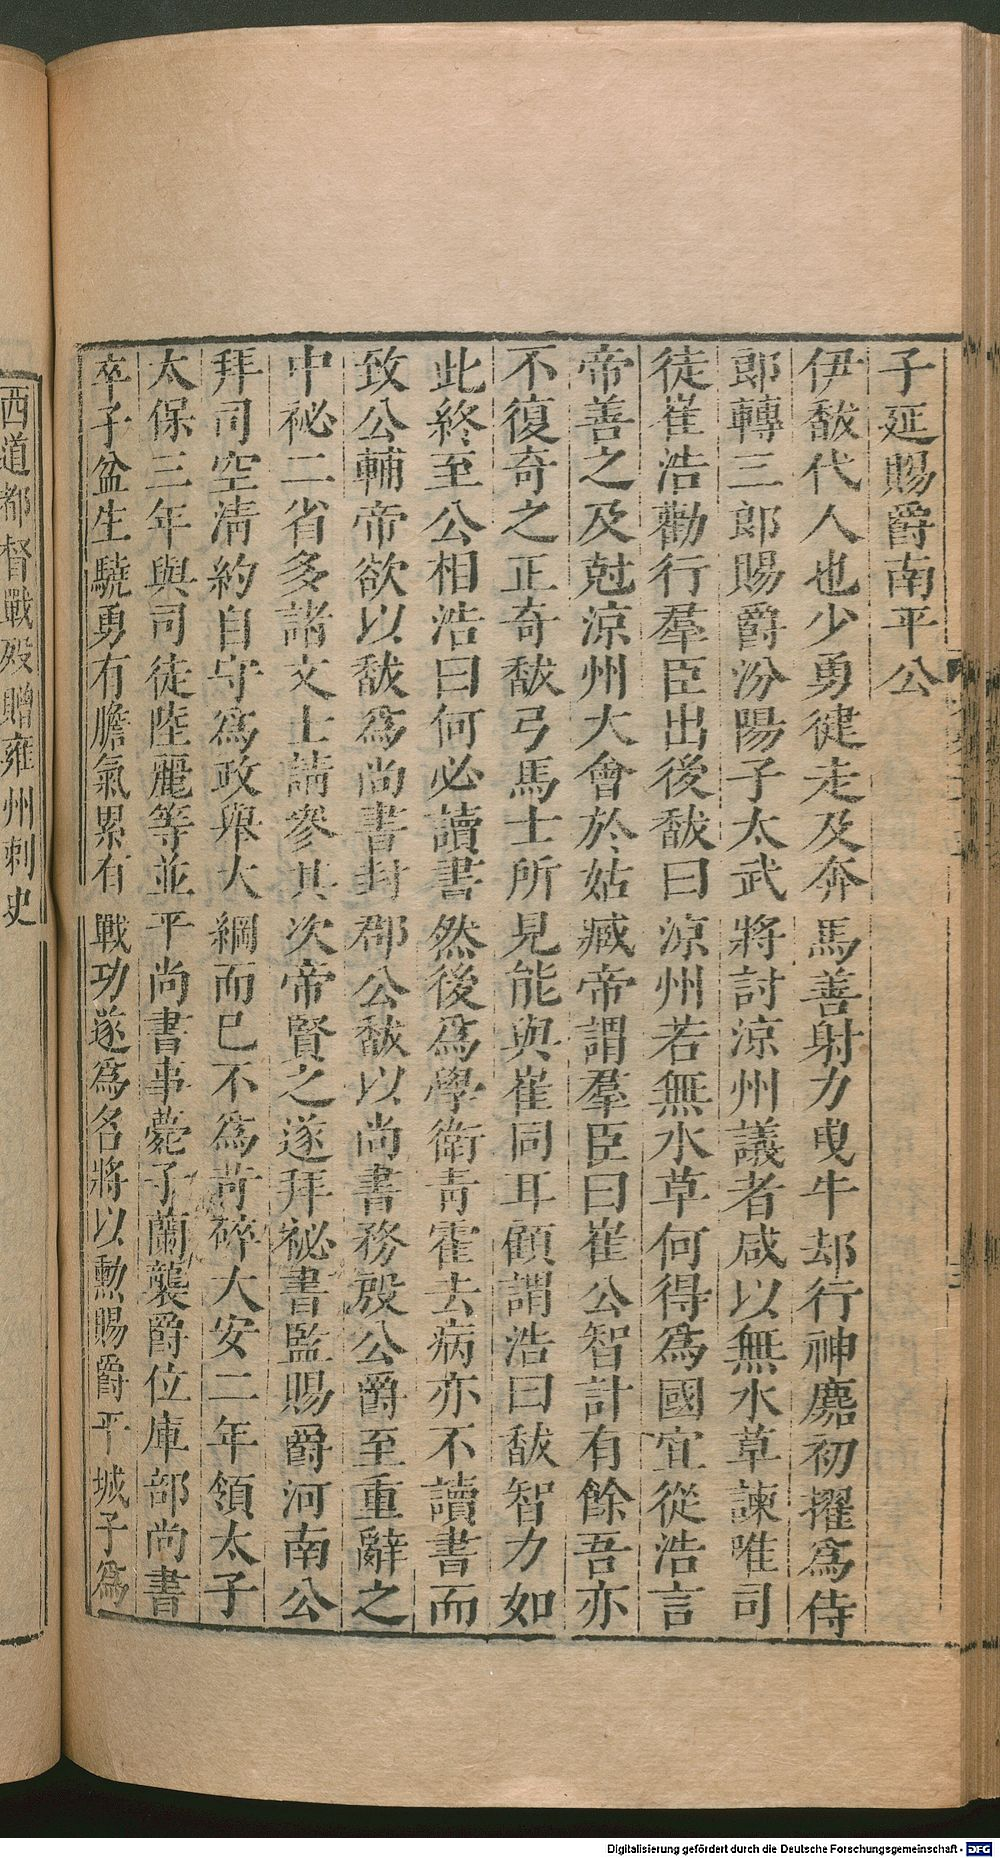 子延賜爵南平公
伊馛代人也少勇健走及奔馬善射力曳牛却行神䴥初擢爲侍
郎轉三郎賜爵汾陽子太武將討涼州議者咸以無水草諫唯司
徒崔浩勸行羣臣出後馛曰涼州若無水草何得爲國宜從浩言
帝善之及尅涼州大會於姑臧帝謂羣臣曰崔公智計有餘吾亦
不復奇之正奇馛弓馬士所見能與崔同耳顧謂浩曰馛智力如
此終至公相浩曰何必讀書然後爲學衛青霍去病亦不讀書而
致公輔帝欲以馛爲尚書封郡公馛以尚書務殷公爵至重辭之
中祕二省多諸文士請參其次帝賢之遂拜祕書監賜爵河南公
拜司空淸約自守爲政舉大綱而已不爲苛碎大安二年領太子
太保三年與司徒陸麗等並平尚書事薨子蘭襲爵位庫部尚書
卒子盆生驍勇有膽氣累有戰功遂爲名將以勲賜爵平城子爲
西道都督戰歿贈雍州刺史
Digitalisierung gefördert durch die Deutsche Forschungsgemeinschaft - DFG